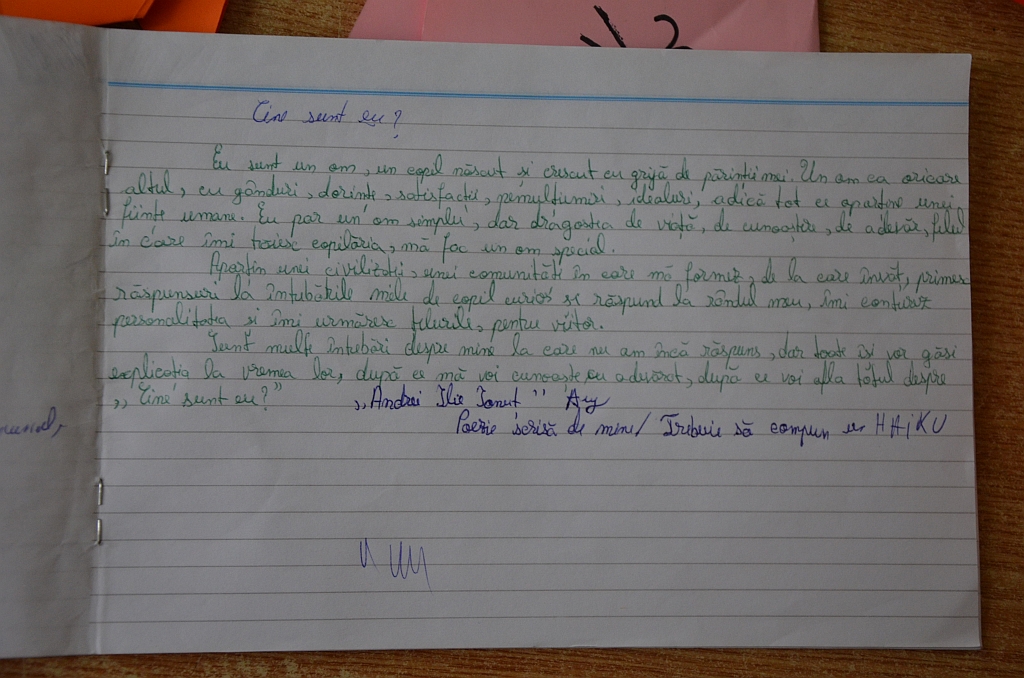 Cine sunt eu?
Eu sunt un om, un copil născut și crescut cu grijă de părinții mei. Un om ca oricare
altul, cu gânduri, dorințe, satisfacții, nemulțumiri, idealuri, adică tot ce aparține unei
ființe umane. Eu par un om simplu, dar dragostea de viață, de cunoaștere, de adevăr, felul
în care îmi trăiesc copilăria, mă fac un om special.
Aparțin unei civilizații, unei comunități în care mă formez, de la care învăț, primesc
răspunsuri la întubările mele de copil curios și răspund la rândul meu, îmi conturez
personalitatea și îmi urmăresc țelurile, pentru viitor.
Sunt multe întrebări despre mine la care nu am încă răspuns, dar toate își vor găsi
explicația la vremea lor, după ce mă voi cunoaște cu adevărat, după ce voi afla totul despre
„Cine sunt eu?"
„Andrei Ilie Ionuț"
Poezie scrisă de mine/ Trebuie să compun un HAiKU